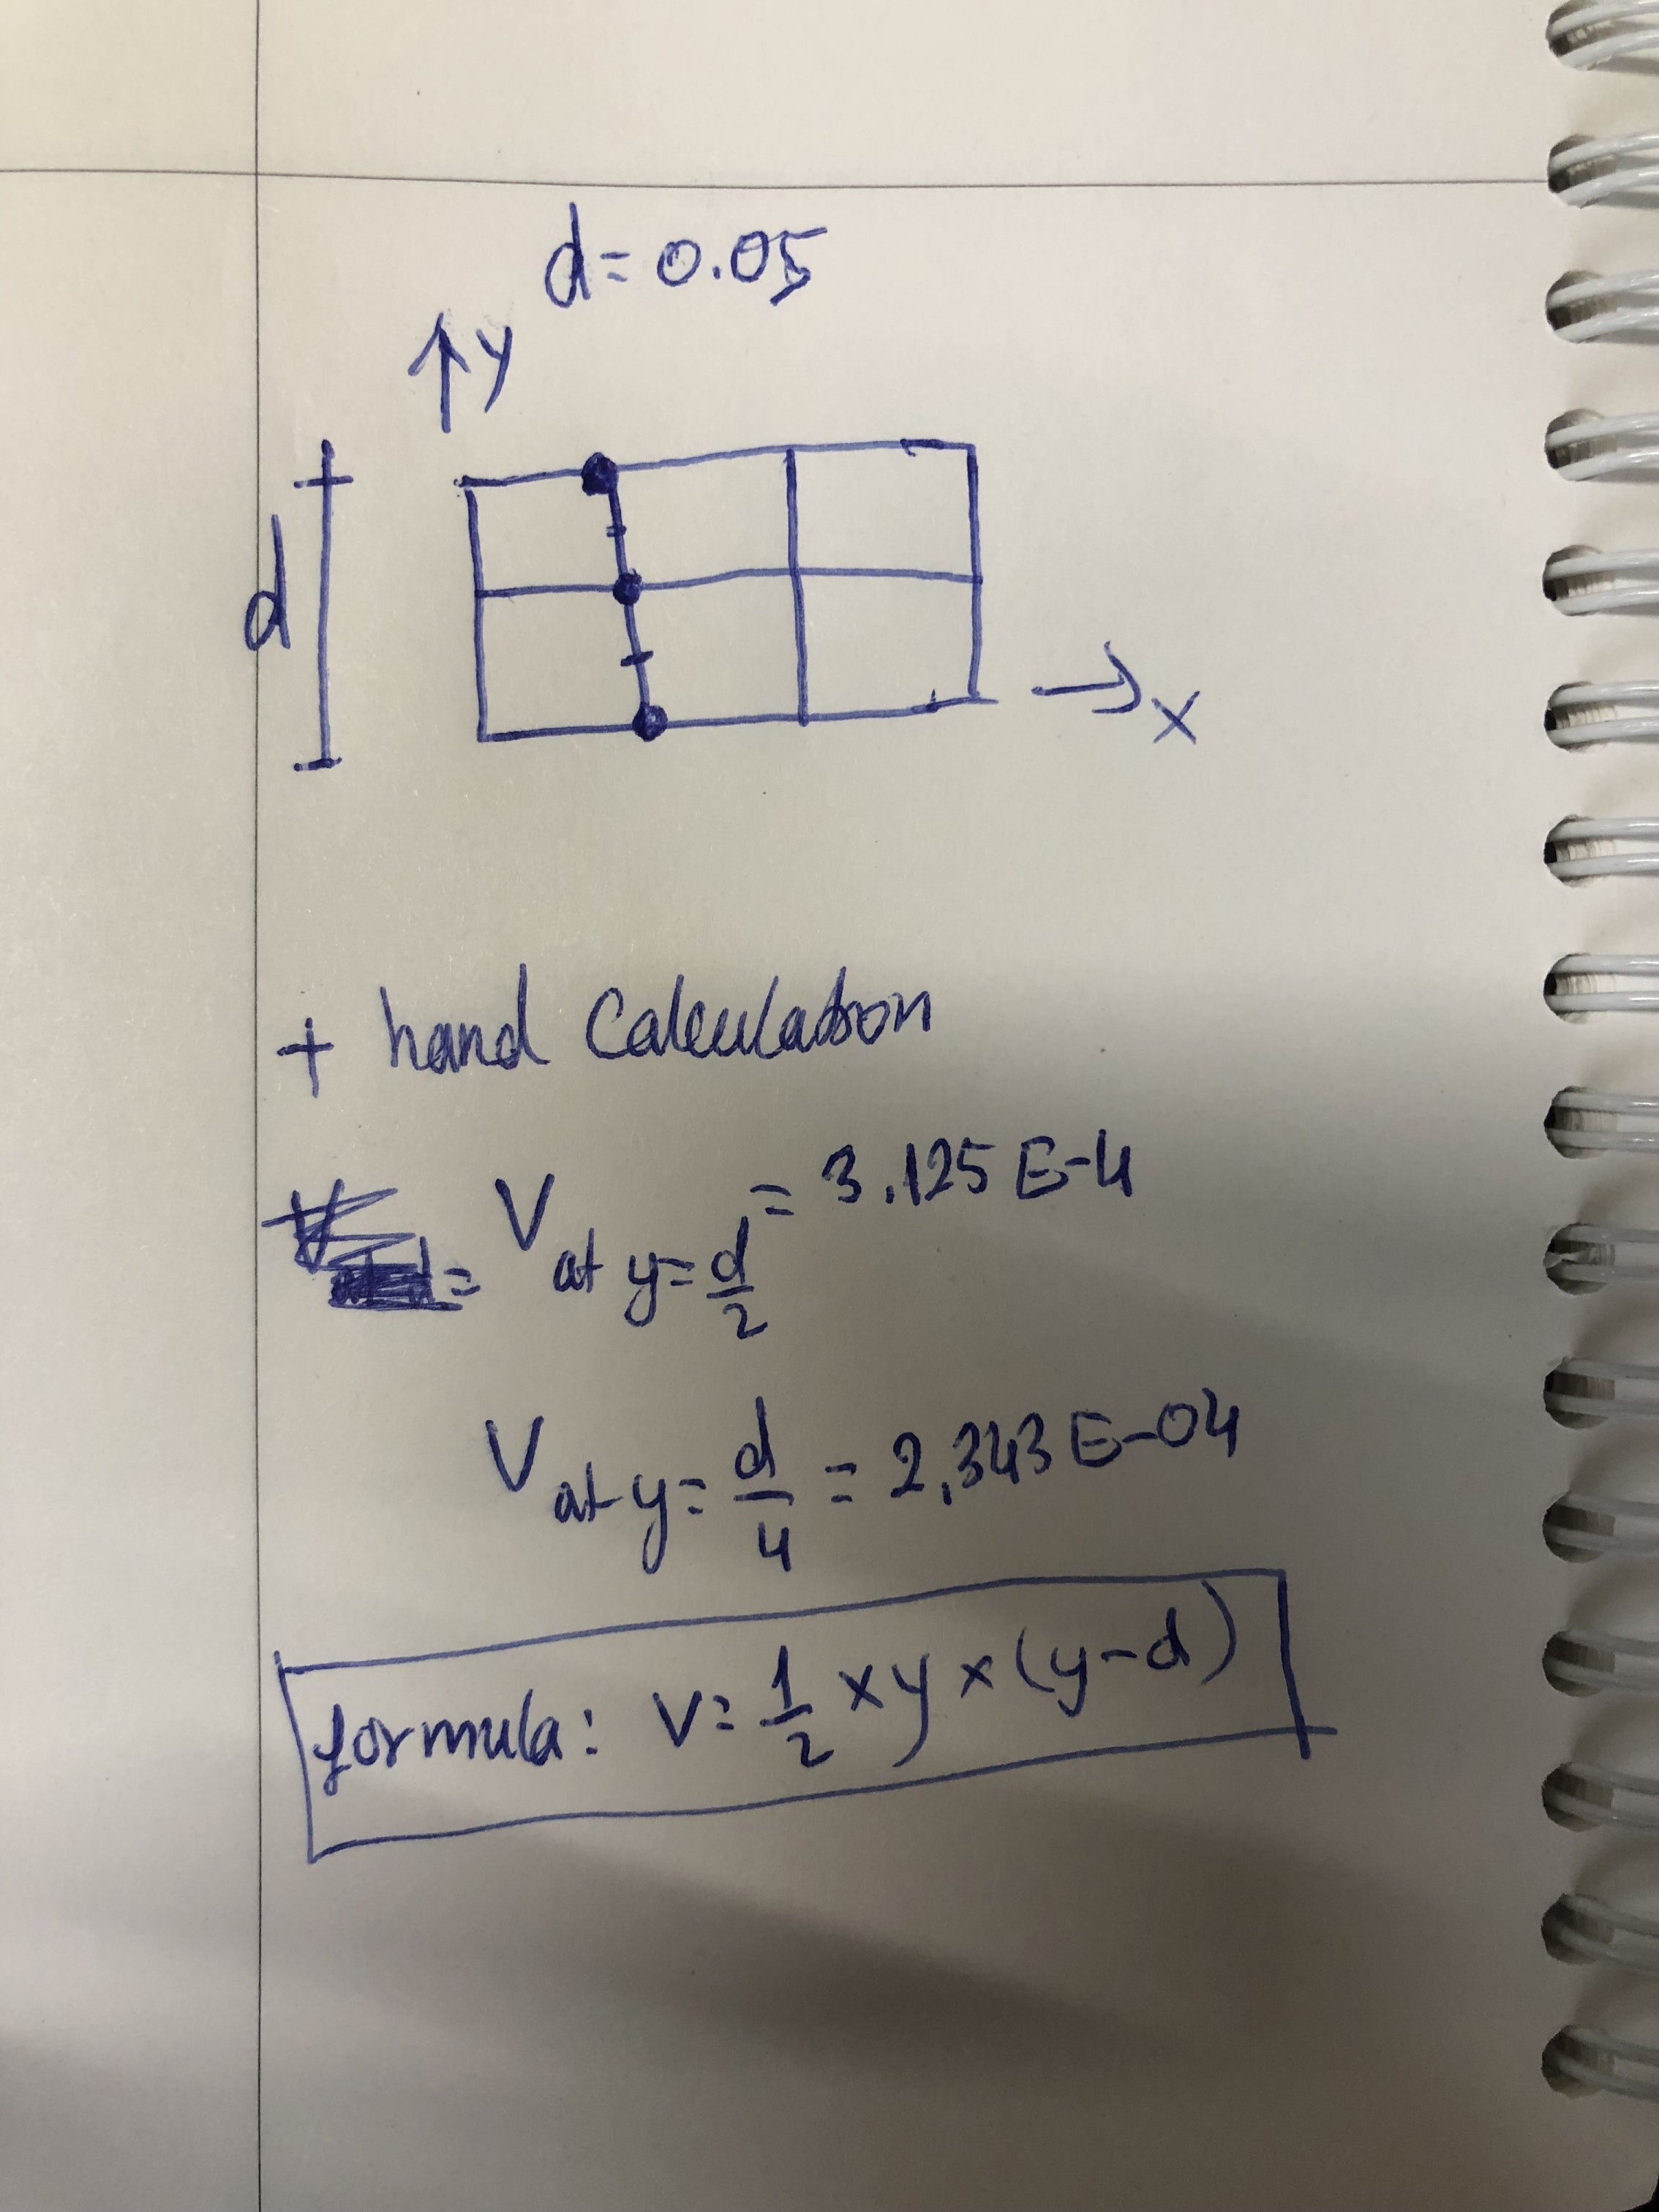 d = 0.05
↑ y
d
→ x
+ hand Calculation
= V at y = d/2 = 3.125 E-4
V at y = d/4 = 2.343 E-04
formula: V = 1/2 × y × (y-d)